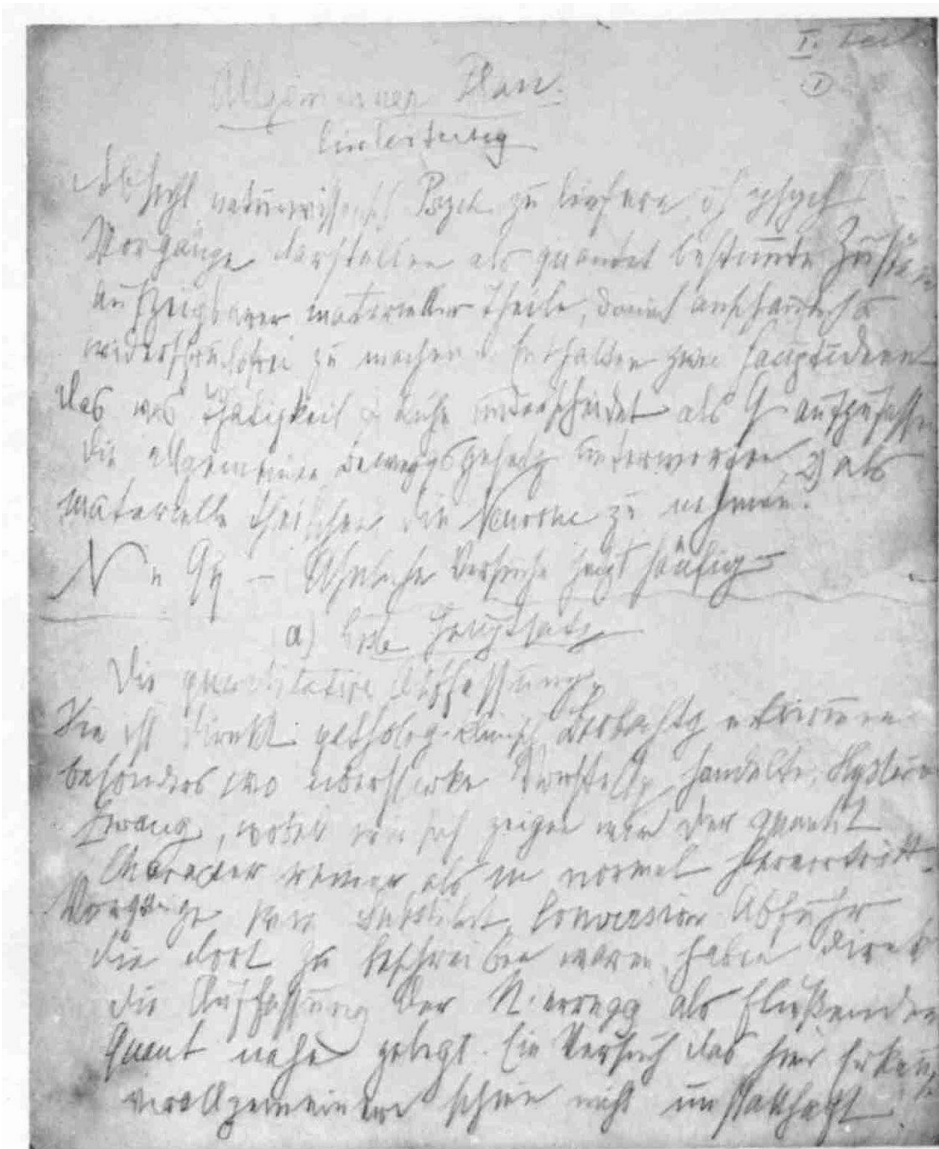 I. Teil
①
Allgemeiner Plan.
Einleitung
Absicht naturwissensch Psych zu liefern dh psych
Vorgänge darstellen als quantit bestimmte Zustände
aufzeigbarer materieller Theile, damit anschaulich u
widerspruchsfrei zu machen. Enthalten zwei Hauptideen
das was Thätigkeit u Ruhe unterscheidet als Q aufzufassen
die allgemeinen Bewegsgesetz unterworfen, 2) als
materielle Theilchen die Neurone zu nehmen.
N u Qη — Ähnliche Versuche jetzt häufig
a) Erster Hauptsatz
Die quantitative Auffassung.
Sie ist direkt patholog. klinisch Beobachtg entnommen
besonders wo überstarke Vorstellg handelte, Hysterie u
Zwang, wobei wie sich zeigen wird der quantit
Charakter reiner als im normal hervortritt
Vorgänge wie Substitut, Conversion Abfuhr
die dort zu beschreiben waren, haben direkt
die Auffassung der N.erregg als fließender
Quant nahe gelegt. Ein Versuch das hier Erkannte
verallgemeinern schien nicht unstatthaft.